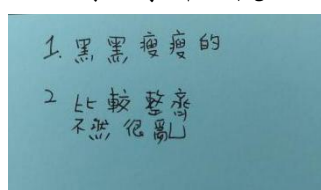 1. 黑黑瘦瘦的
2 比較整齊
不然很亂